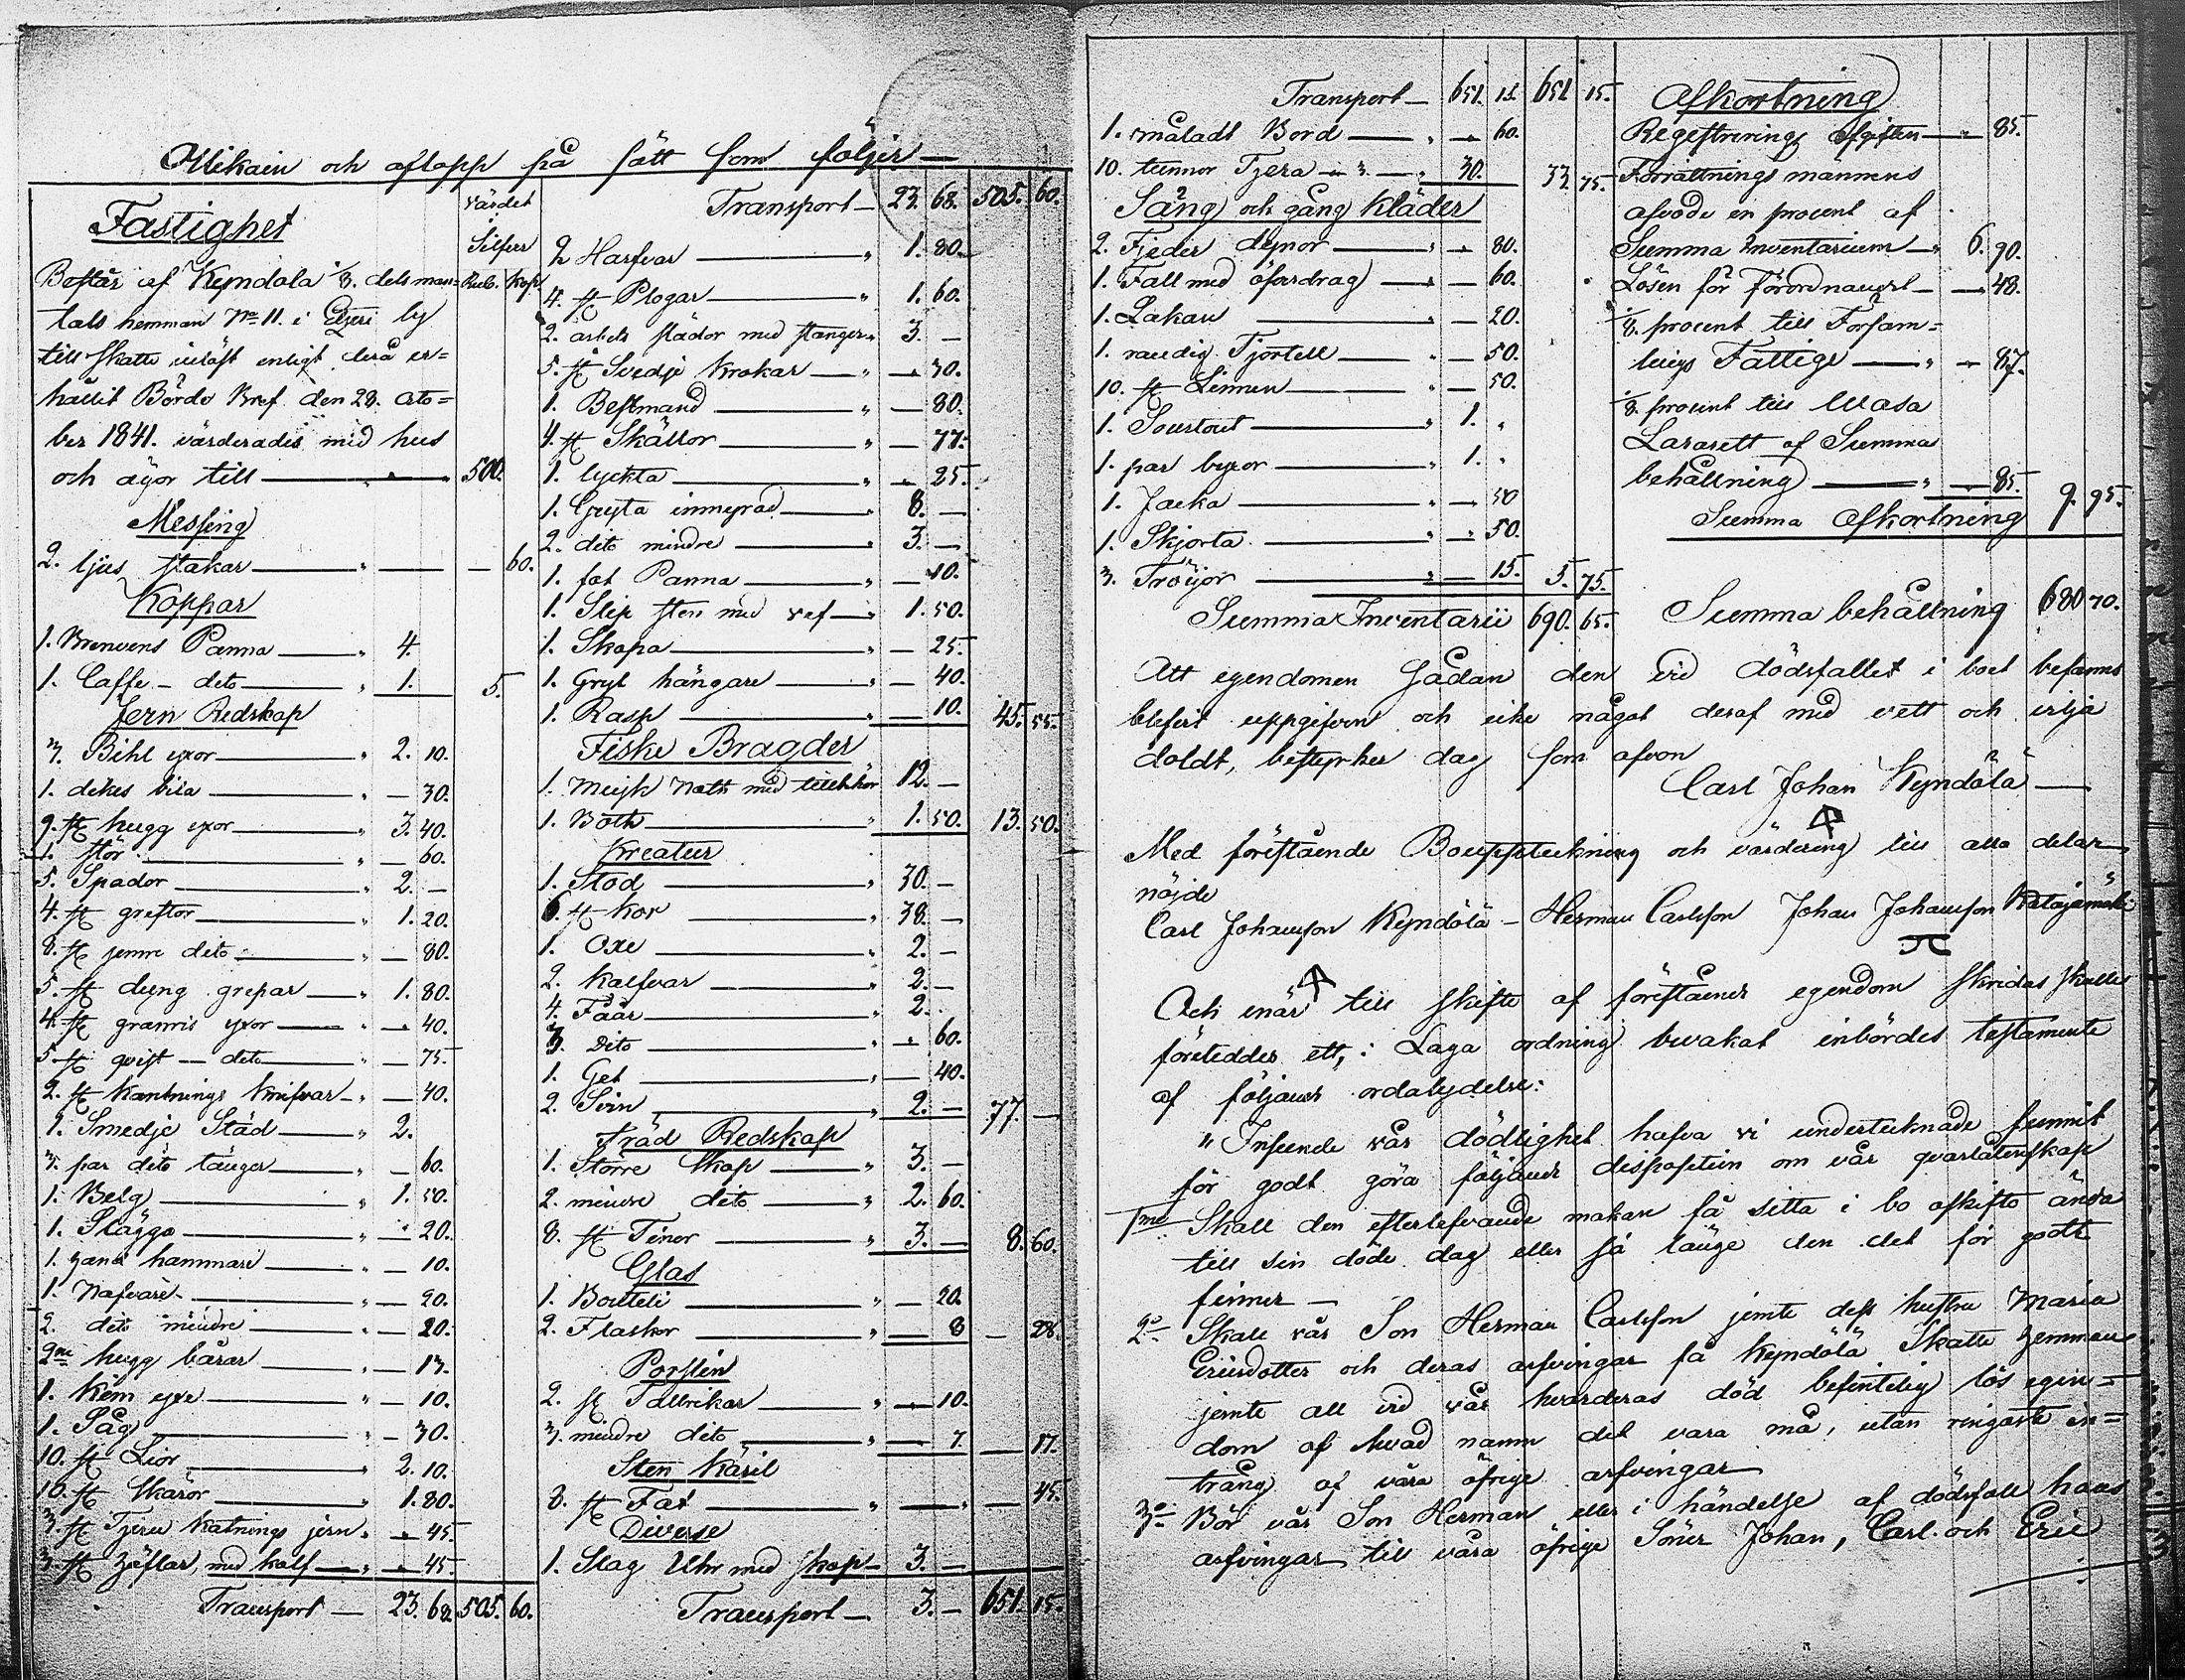 och aflopp på sätt som följer —
Fastighet
Värdet
i
Silfver
Rub. Kop.
Består af Kyndälä 1/3. dels man=
tals hemman No 11. i by
till skatte inlöst enligt derå er=
hållit Börde Bref den 28. Octo=
ber 1841. värderades med hus
och ägor till — 500.
Messing
2. ljus stakar — " — — 60.
Koppar
1. Brenvens Panna — " 4.
1. Caffe - dito — " 1. 5.
Jern Redskap
3. Bihl yxor — " 2. 10.
1. dikes bila — " — 30.
9. st hugg yxor — " 3. 40.
1. stör — " — 60.
5. Spador — " 2. —
4. st greftor — " 1. 20.
8. st jemre dito — " — 80.
5. st dyng grepar — " 1. 80.
4. st granris yxor — " — 40.
5. st qvist — dito — " — 75.
2. st Kantnings Knifvar — " — 40.
1. Smedje Städ — " 2.
3. par dito tänger — " — 60.
1. Belg — " 1. 50.
1. Slägga — " — 20.
1. hand hammare — " — 10.
1. Nafvare — " — 20.
2. dito mindre — " — 20.
2ne hugg bårar — " — 13.
1. Köm yxe — " — 10.
1. Såg — " — 30.
10. st Lior — 2. 10.
10. st Skäror — " 1. 80.
3. st Tjeru Katnings jern " — 45.
3. st med kalf — " — 45.
Transport — 23. 68. 505. 60.
Transport — 23. 68. 505. 60.
2 Harfvar — " 1. 80.
4. st Plogar — " 1. 60.
2. arbets slädor med stänger " 3. —
5. st Svedje Krokar — " — 30.
1. Bestmand — " — 80.
4. st Skällor — " — 77.
1. lyckta — " — 25.
1. Gryta inmyrad — " 8. —
2. dito mindre — " 3. —
1. fot Panna — " — 10.
1. Slip sten med vef — " 1. 50.
1. Skopa — " — 25.
1. Gryt hängare — " — 40.
1. Rasp — " — 10. 45. 55.
Fiske Bragder
1. Noth med tillbehör 12. —
1. Båth — " 1. 50. 13. 50.
Kreatur
1. Stod — " 30. —
6. st Kor — " 38. —
1. Oxe — " 2. —
2. Kalfvar — " 2. —
4. Fåår — " 2. "
3. Dito — " — 60.
1. Get — " — 40.
2. Svin — " 2. — 77. —
Träd Redskap
1. Större Skap — " 3. —
2. mindre dito — " 2. 60.
8. st Tinor — " 3. — 8. 60.
Glas
1. Boutteli — " — 20.
2. Flaskor — " — 8 — 28.
Porslin
2. st Tallrikar — " — 10.
3. mindre dito — " — 7. — 17.
Sten Käril
3. st Fat — " — " — 45.
Diverse
1. Slag Uhr med Skap — 3. —
Transport — 3. — 651. 15.
Transport — 651. 15. 651. 15.
1. måladt Bord — " — 60.
10. tunnor Tjera — " 3. — " 30. 33. 75.
Säng och gång Kläder
2. Fjeder dynor — " — 80.
1. Fall med öfverdrag — " — 60.
1. Lakan — — 20.
1. randig Tjortell — " — 50.
10. st Linnen — " — 50.
1. Sourtout — " 1. "
1. par byxor — " 1. "
1. Jacka — " — 50
1. Skjorta — " — 50.
3. Tröijor — " — 15. 5. 75.
Summa Inventarii 690. 65.
Afkortning
Registrerings Afgiften — " 85.
Förrättnings mannens
afvode en procent af
Summa Inventarium — " 6. 90.
Lösen för Förordnandet — — 48.
1/8. procent till Försam=
lings Fattige — " — 87.
1/8. procent till Wasa
Lazarett af Summa
behållning — " — 85. 9. 95.
Summa Afkortning
Summa behållning 680 70.
Att egendomen Sådan den vid dödsfallet i boet befanns
blifvit uppgifven och icke något deraf med vett och vilja
doldt, bestyrkes dag som ofvan
Carl Johan Kyndölä —
Med föreståande Bouppteckning och värdering till alla delar
nöjde
Carl Johansson Kyndölä — Herman Carlsson Johan Johansson Katajamäki
Och enär till skifte af föreståends egendom skridas skulle
företeddes ett, i Laga ordning bevakat inbördes testamente
af följande ordalydelse:
" Inseende vår dödlighet hafva vi undertecknade funnit
för godt göra följande disposition om vår qvarlåtenskap
1mo Skall den efterlefvande makan få sitta i bo oskifto ända
till sin döde dag eller så länge den det för godt
finner —
2o Skall vår Son Herman Carlsson jemte dess hustru Maria
Ericsdotter och deras arfvingar få Kyndölä Skatte hemman
jemte all vid vår hvarderas död befintelig lös egen=
dom af hvad namn det vara må, utan ringaste in=
trång af våra öfrige arfvingar
3o Bör vår Son Herman eller i händelse af dödsfall hans
arfvingar till våra öfrige Söner Johan, Carl och Eric